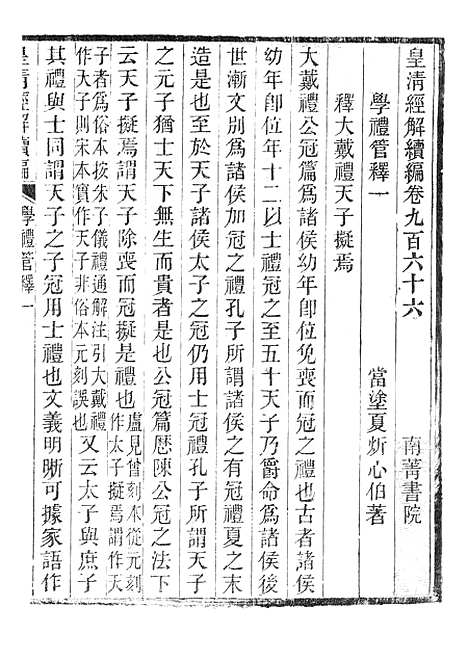 皇清經解續編卷九百六十六　南菁書院
學禮管釋一　當塗夏炘心伯著
釋大戴禮天子擬焉
大戴禮公冠篇爲諸侯幼年卽位免喪而冠之禮也古者諸侯
幼年卽位年十二以士禮冠之至五十天子乃爵命爲諸侯後
世漸文別爲諸侯加冠之禮孔子所謂諸侯之有冠禮夏之末
造是也至於天子諸侯太子之冠仍用士冠禮孔子所謂天子
之元子猶士天下無生而貴者是也公冠篇歷陳公冠之法下
云天子擬焉謂天子除喪而冠擬是禮也盧見曾刻本從元刻
作太子擬焉謂作天
子者爲俗本按朱子儀禮通解注引大戴禮
作天子則宋本實作天子非俗本元刻誤也又云太子與庶子
其禮與士同謂天子之子冠用士禮也文義明晰可據家語作
皇清經解續編　學禮管釋一